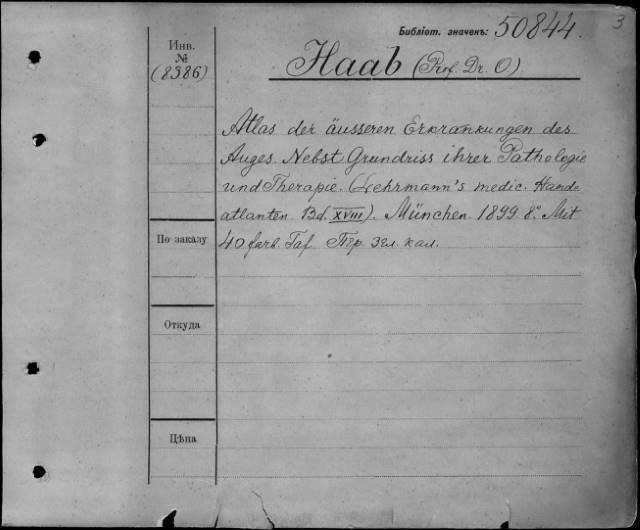 Библіот. значенъ: 50844.
3
Инв.
№
(8386)
Haab (Prof. Dr. O)
Atlas der äusseren Erkrankungen des
Auges. Nebst Grundriss ihrer Pathologie
und Therapie. (Lehmann's medic. Hand=
atlanten Bd. XVIII). München. 1899. 8°. Mit
40 farb. Taf.
По заказу
Откуда
Цѣна